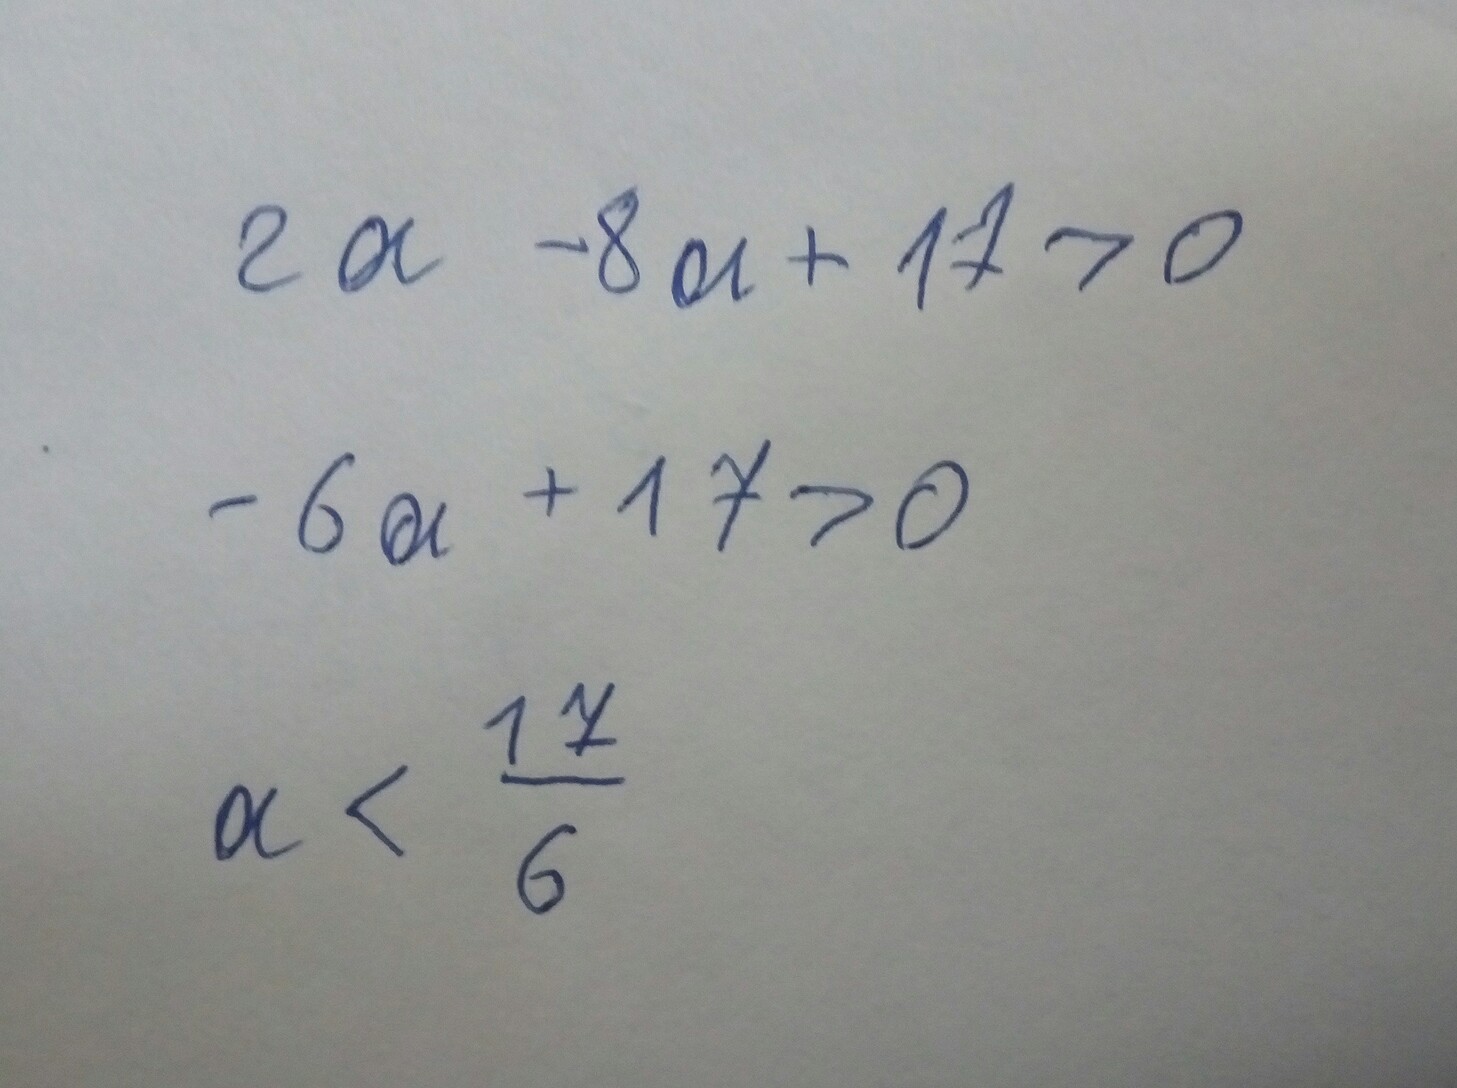 2a -8a + 17 > 0
-6a + 17 > 0
a < 17/6